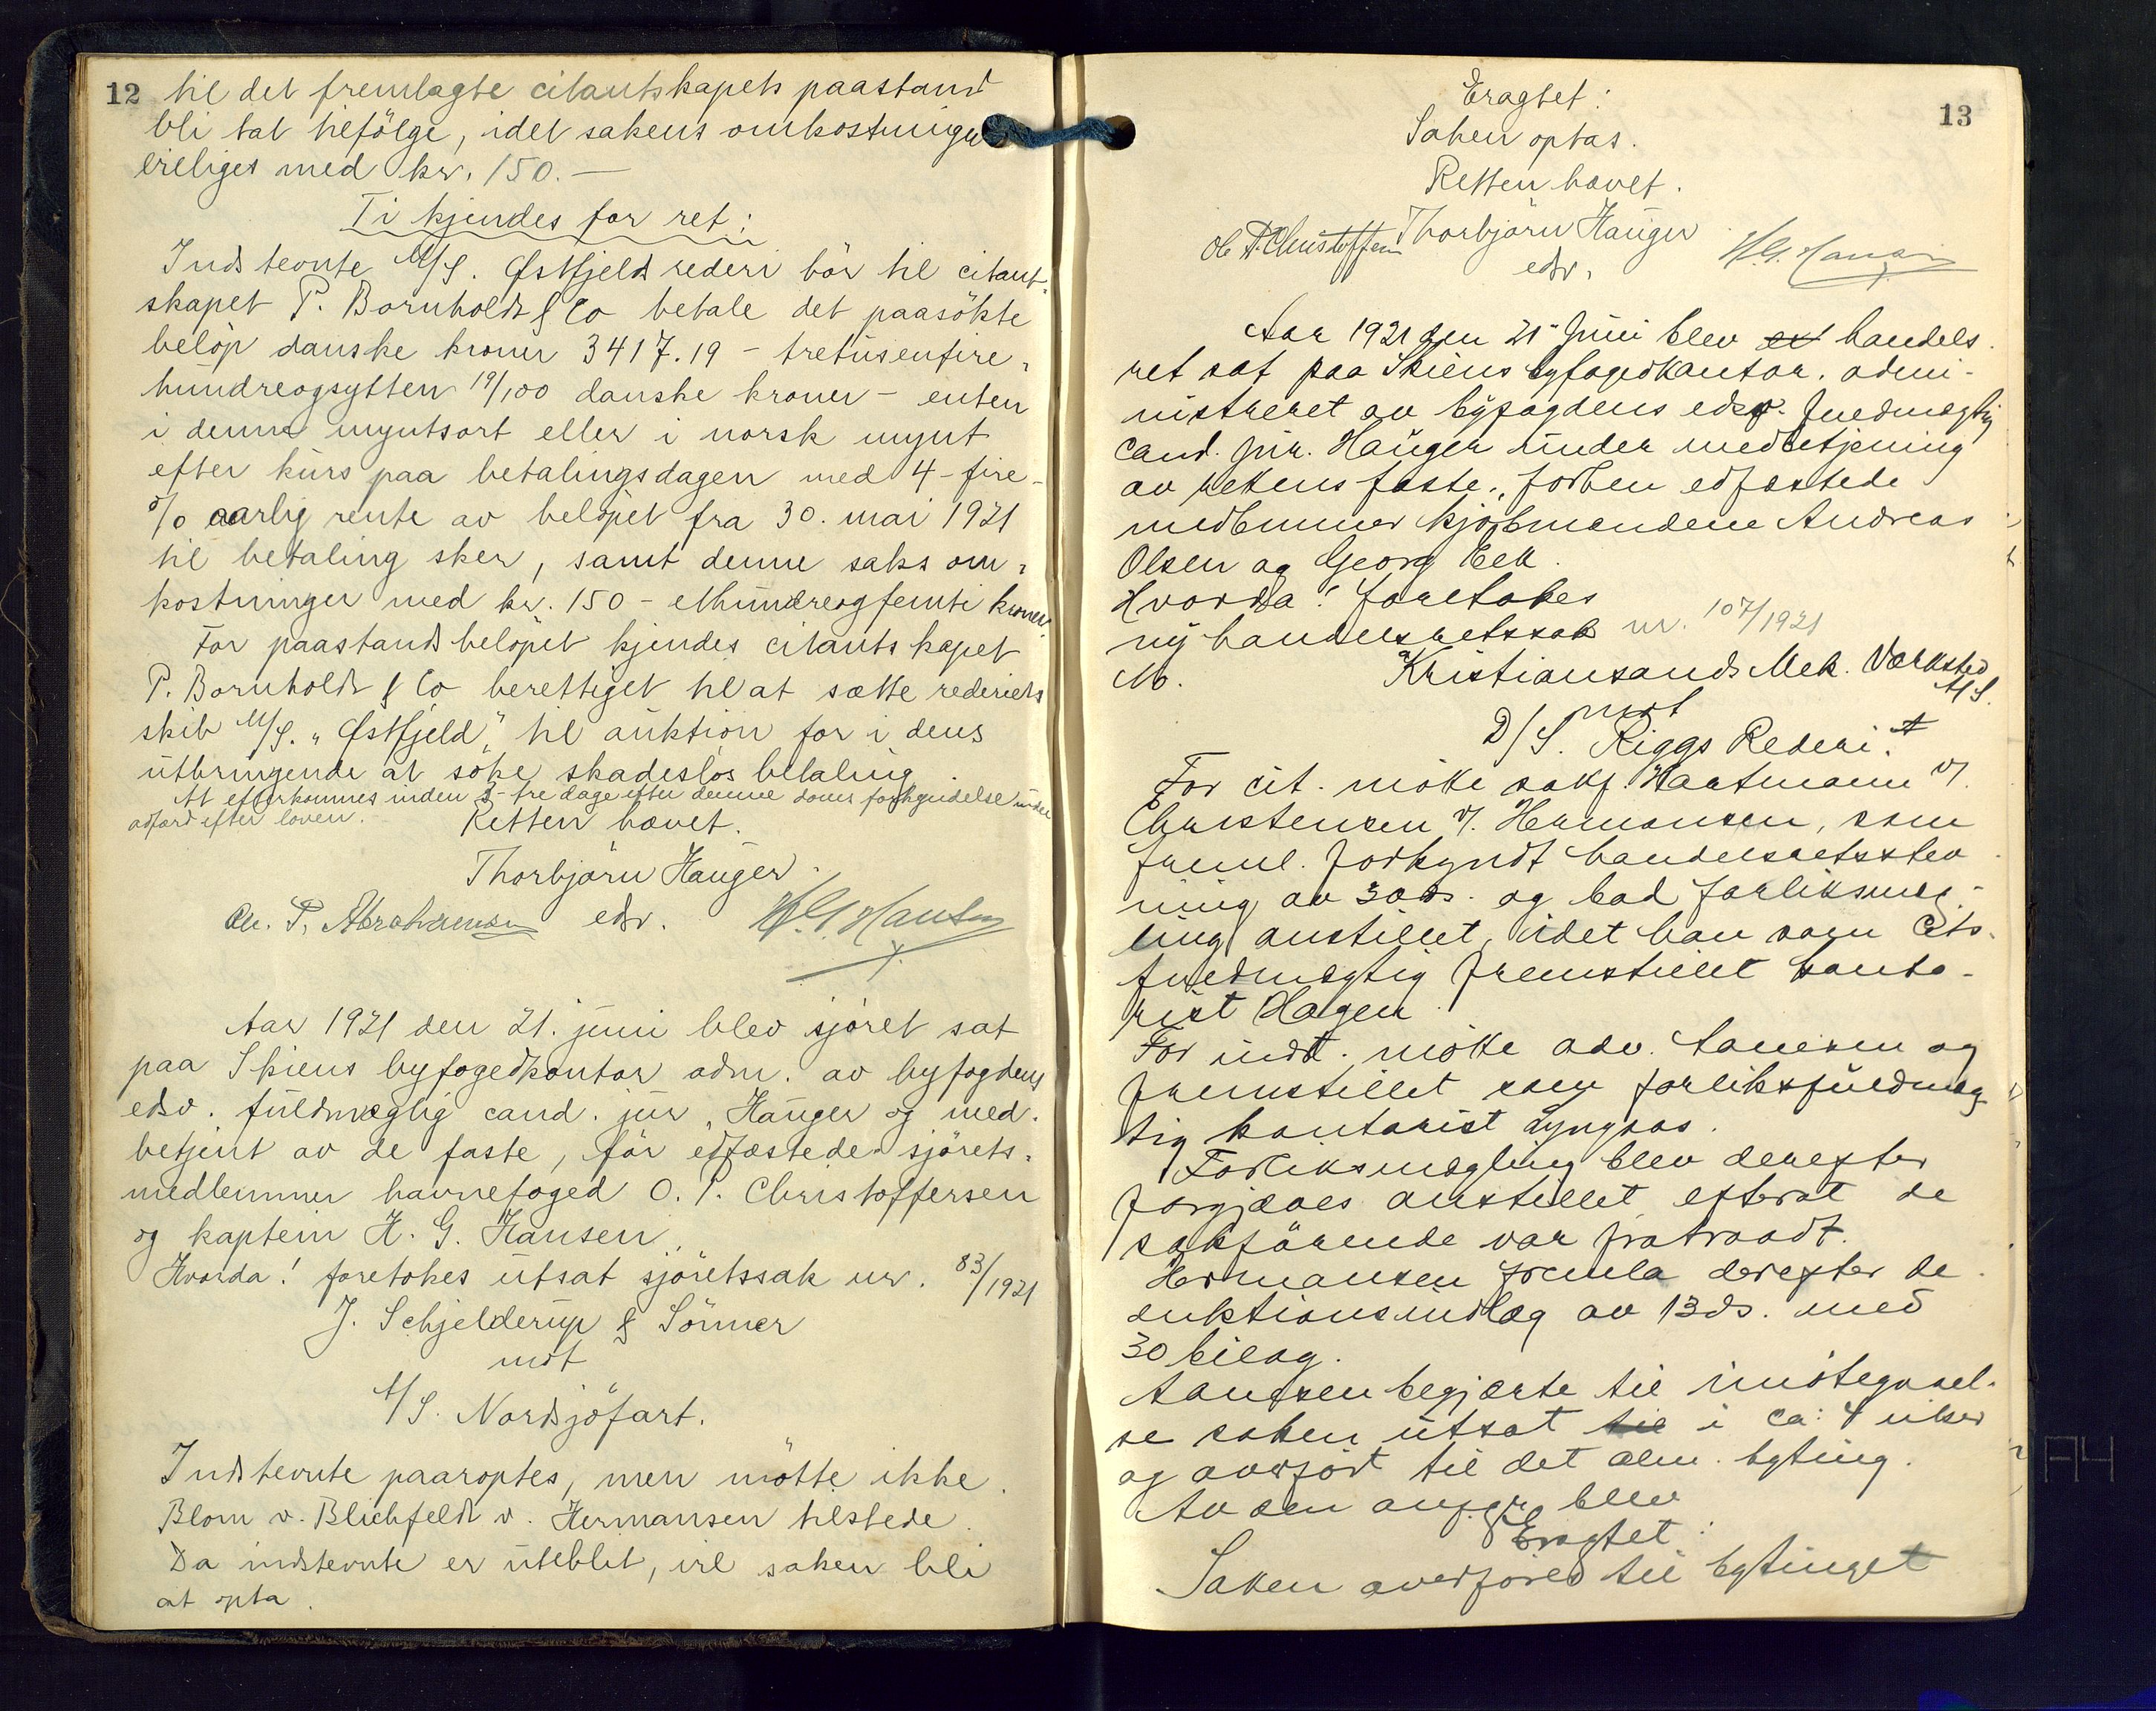 12
til det fremlagte citantskapets paastand
bli tat tilfölge, idet sakens omkostninger
eieliges med kr. 150.—
Ti kjendes for ret:
Indstevnte M/S. Østfjelds rederi bör til citant-
skapet P. Bornholdt & Co betale det paasökte
belöp danske kroner 3417.19 - tretusenfire-
hundreogsytten 19/100 danske kroner - enten
i denne myntsort eller i norsk mynt
efter kurs paa betalingsdagen med 4 - fire -
o/o aarlig rente av belöpet fra 30. mai 1921
til betaling sker, samt denne saks om-
kostninger med kr. 150 - ethundreogfemti kroner.
For paastandsbelöpet kjendes citantskapet
P. Bornholdt & Co berettiget til at sætte rederiets
skib M/S. "Østfjeld" til auktion for i dens
utbringende at söke skadeslös betaling.
At efterkommes inden 3 - tre dage efter denne doms forkyndelse under
adfærd efter loven.
Retten hævet.
Thorbjörn Hauger.
Chr. P. Abrahamsen edsv. H. G. Hansen
Aar 1921 den 21. juni blev sjöret sat
paa Skiens byfogedkontor adm. av byfogdens
edsv. fuldmægtig cand. jur. Hauger og med-
betjent av de faste, för edfæstede sjörets-
medlemmer havnefoged O. P. Christoffersen
og kaptein H. G. Hansen.
Hvorda! foretokes utsat sjöretssak nr. 83/1921
J. Schjelderup & Sönner
mot
A/S. Nordsjöfart.
Indstevnte paaroptes, men mötte ikke.
Blom v. Blichfeldt v. Hermansen tilstede.
Da indstevnte er uteblit, vil saken bli
at opta.
13
Eragtet:
Saken optas.
Retten hævet.
Thorbjörn Hauger
Ole P. Christoffersen edsv. H. G. Hansen
Aar 1921 den 21de Juni blev et handels-
ret sat paa Skiens byfogedkontor, admi-
nistreret av byfogdens edsv. fuldmægtig
cand. jur. Hauger under medbetjening
av rettens faste, forhen edfæstede
medlemmer kjöbmændene Andreas
Olsen og Georg Eek.
Hvorda! foretokes
ny handelsretssak nr. 107/1921
M. Kristiansands Mek. Værksted
A/S.
mot
D/S. Riggs Rederi A
For cit. mötte sakf. Hartmann v/
Christensen v/. Hermansen, som
freml. forkyndt handelsretsstev-
ning av 30 ds. og bad forliksmæg-
ling anstillet, idet han som cits.
fuldmægtig fremstillet konto-
rist Hagen.
For indst. mötte adv. Aanesen og
fremstillet som forliksfuldmæg-
tig kontorist Lyngaas.
Forliksmægling blev derefter
forgjæves anstillet efterat de
sakförende var fratraadt.
Hermansen fremla derefter de-
duktionsindlæg av 13 ds. med
30 bilag.
Aanesen begjærte til imötegaael-
se saken utsat til i ca: 4 uker
og overfört til det alm. byting.
Av den anf. gr. blev
Eragtet:
Saken overföres til bytinget